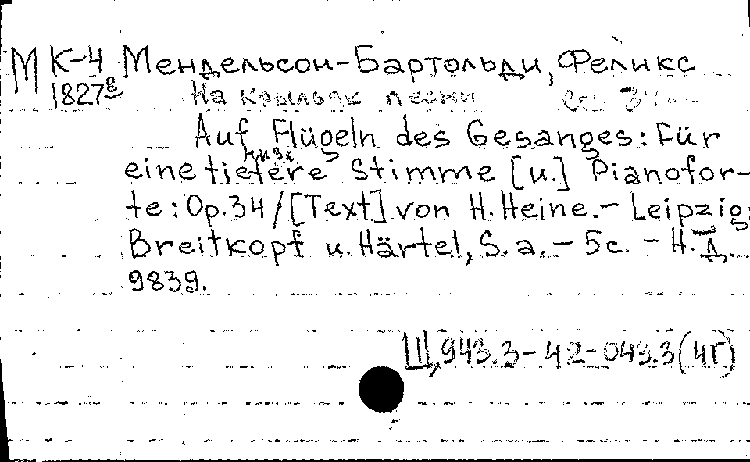 М К-4 Мендельсон-Бартольди, Феликс
1827в На крыльях песни
Auf Flügeln des Gesanges: Für
eine tiefere Stimme [u.] Pianofor-
te: Op. 34 / [Text] von H. Heine. - Leipzig:
Breitkopf u. Härtel, S. a. - 5 c. - Н. Д.
9839.
Щ 943.3-42-045.3 (4Г)